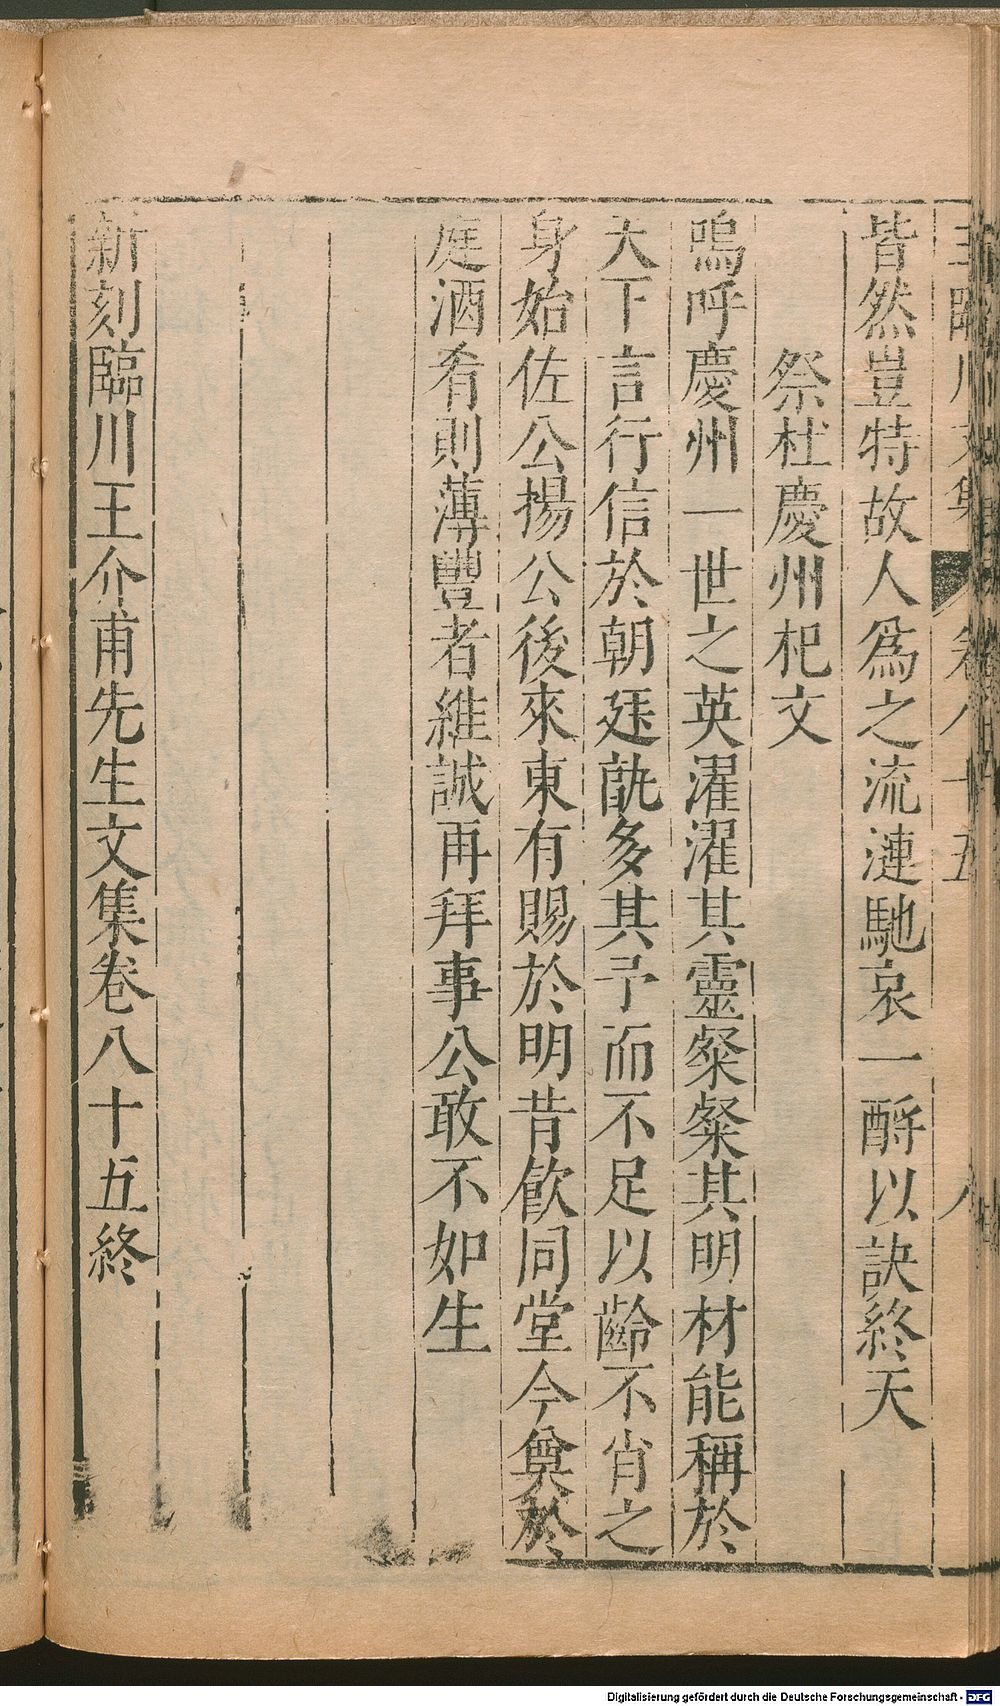 王臨川文集 卷八十五 八
皆然豈特故人爲之流漣馳哀一酹以訣終天
祭杜慶州杞文
嗚呼慶州一世之英濯濯其靈粲粲其明材能稱於
天下言行信於朝廷孰多其予而不足以齡不肖之
身始佐公揚公後來東有賜於明昔飲同堂今奠於
庭酒肴則薄豐者維誠再拜事公敢不如生
新刻臨川王介甫先生文集卷八十五終
Digitalisierung gefördert durch die Deutsche Forschungsgemeinschaft - DFG